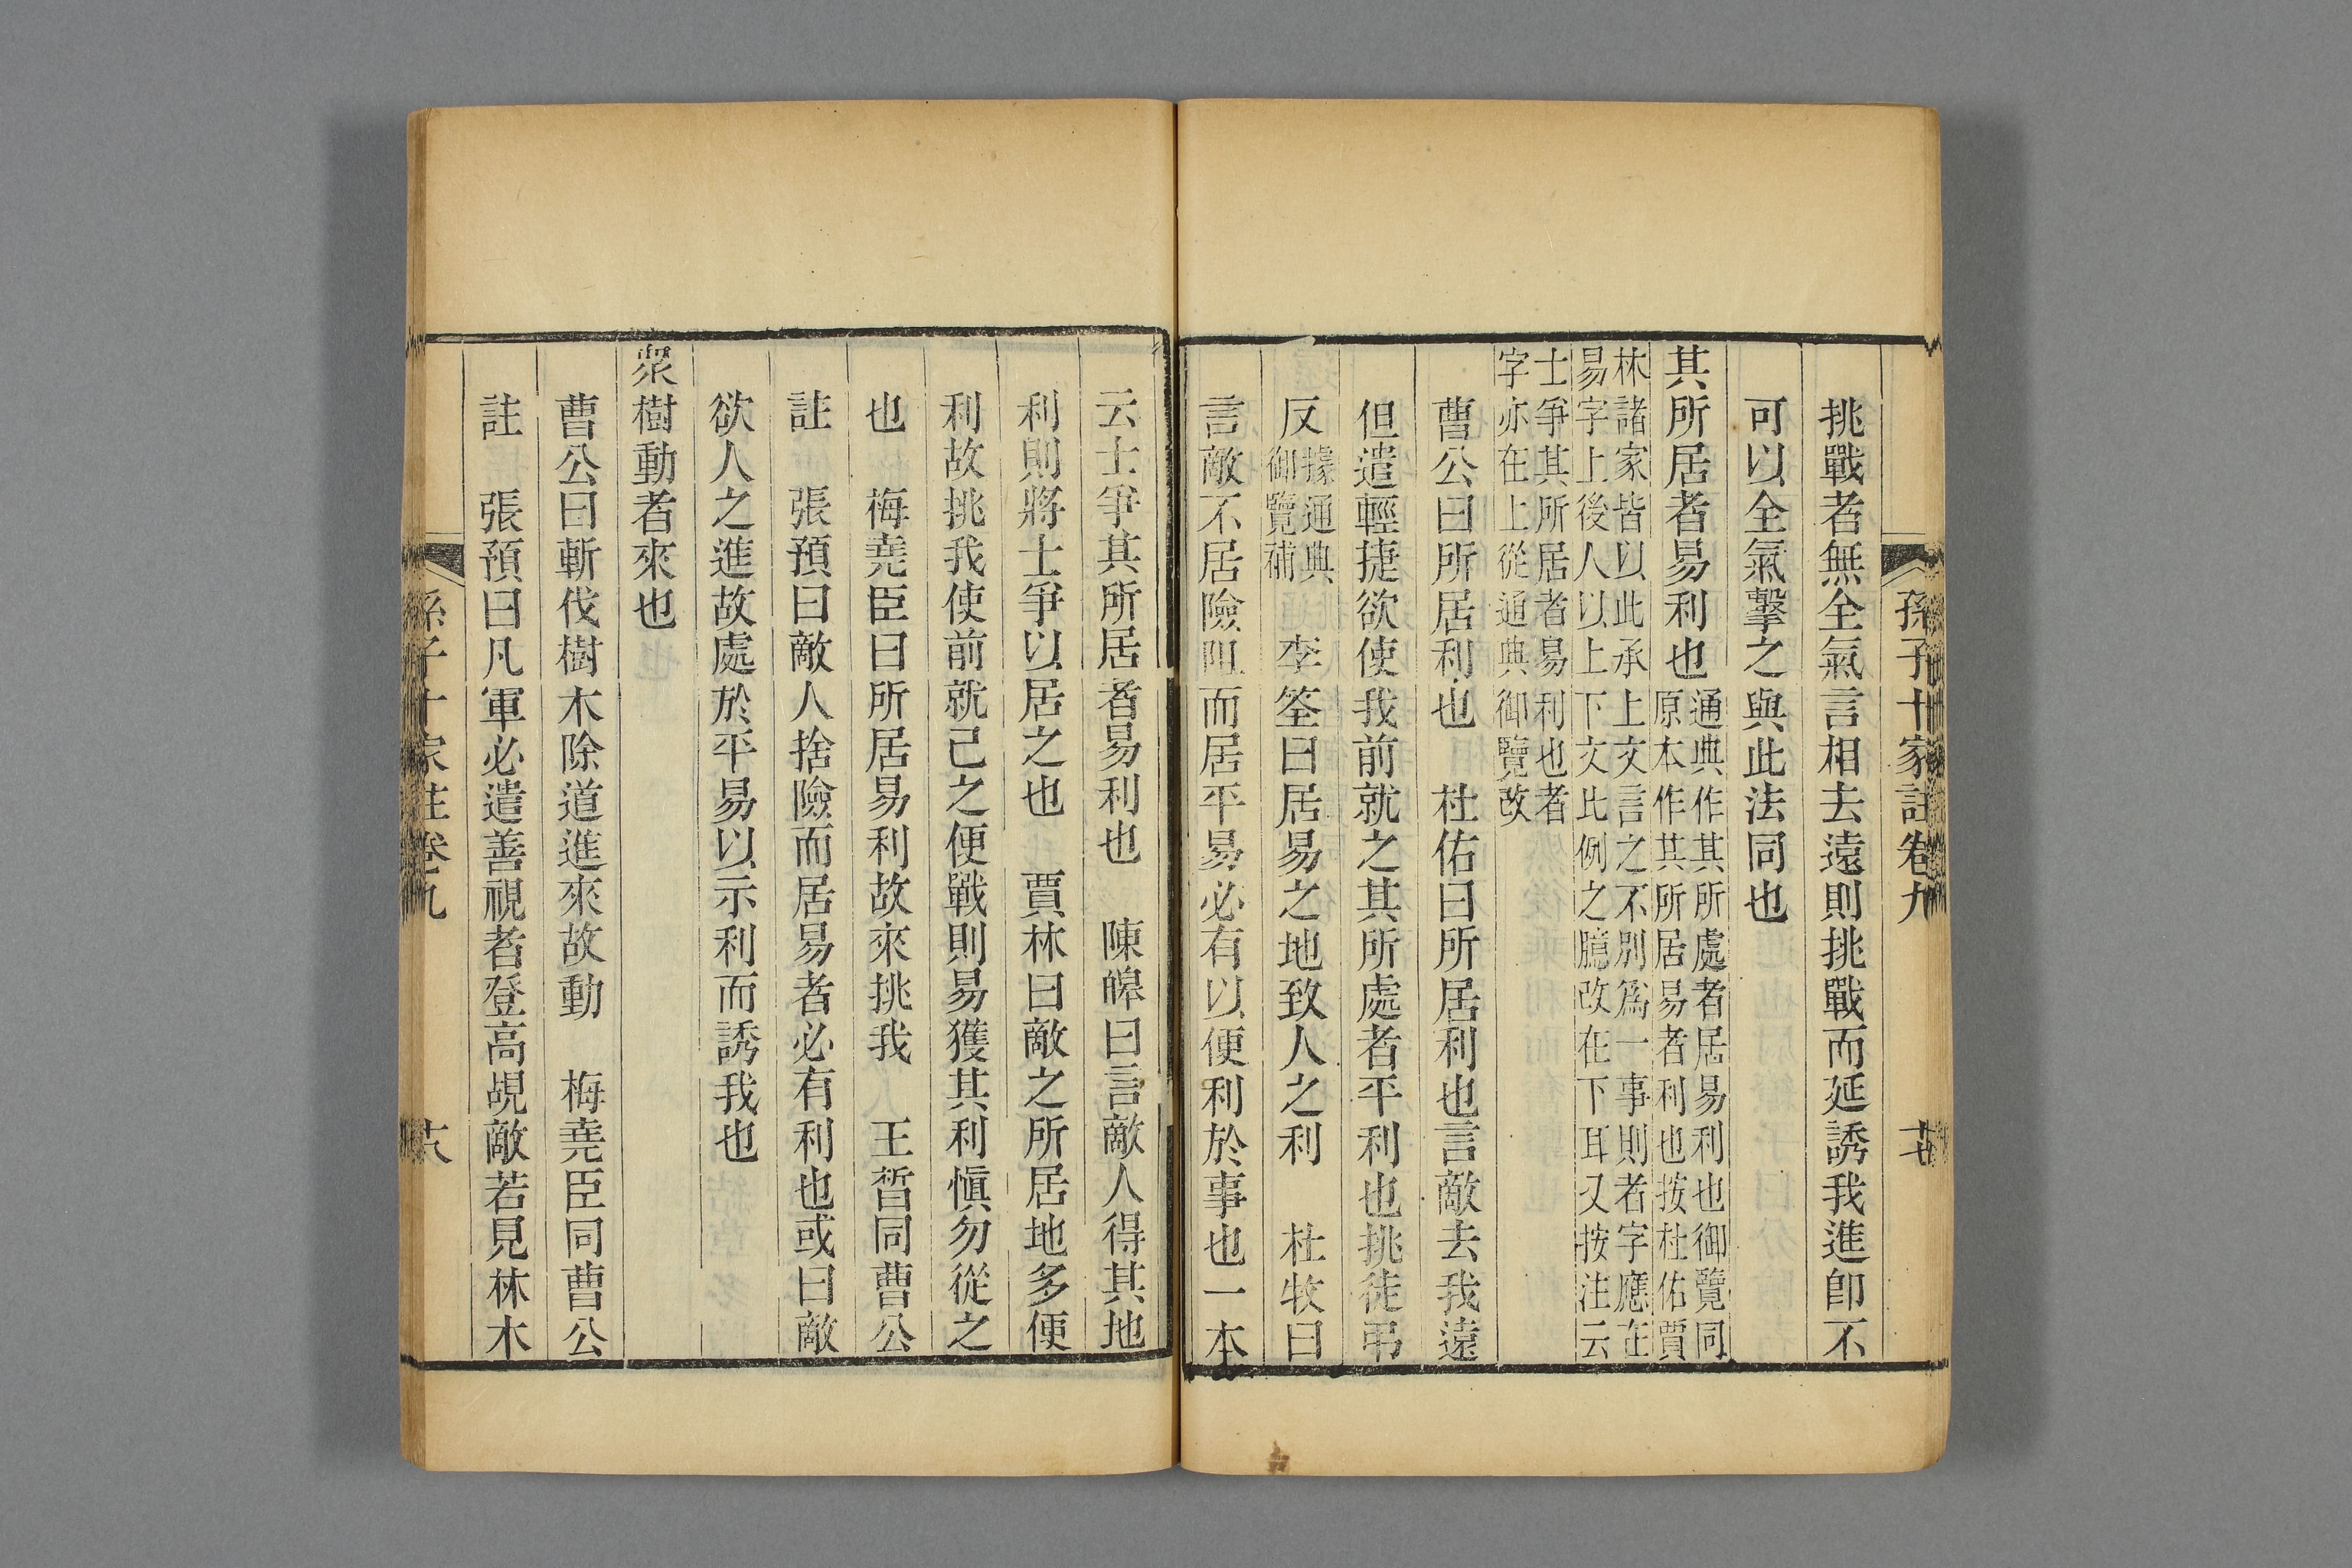 孫子十家註卷九 十七
挑戰者無全氣言相去遠則挑戰而延誘我進卽不
可以全氣擊之與此法同也
其所居者易利也通典作其所處者居易利也御覽同
原本作其所居易者利也按杜佑賈
林諸家皆以此承上文言之不別爲一事則者字應在
易字上後人以上下文比例之臆改在下耳又按注云
士爭其所居者易利也者
字亦在上從通典御覽改
曹公曰所居利也 杜佑曰所居利也言敵去我遠
但遣輕捷欲使我前就之其所處者平利也挑徒弔
反據通典
御覽補 李筌曰居易之地致人之利 杜牧曰
言敵不居險阻而居平易必有以便利於事也一本
云士爭其所居者易利也 陳皥曰言敵人得其地
利則將士爭以居之也 賈林曰敵之所居地多便
利故挑我使前就己之便戰則易獲其利愼勿從之
也 梅堯臣曰所居易利故來挑我 王晳同曹公
註 張預曰敵人捨險而居易者必有利也或曰敵
欲人之進故處於平易以示利而誘我也
衆樹動者來也
曹公曰斬伐樹木除道進來故動 梅堯臣同曹公
註 張預曰凡軍必遣善視者登高覘敵若見林木
孫子十家註卷九 十八